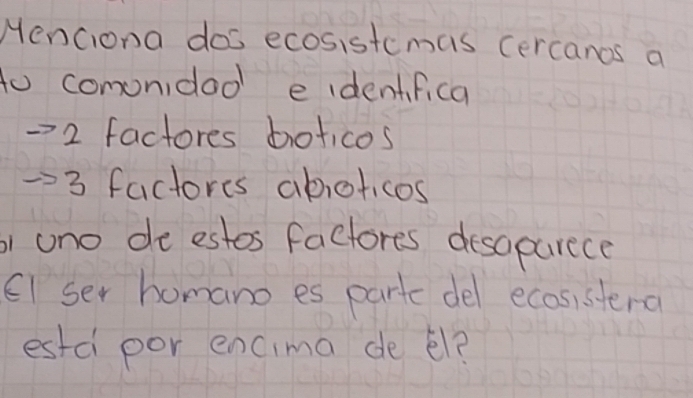 Menciona dos ecosistemas cercanos a
tu comunidad e identifica
→2 factores bioticos
→3 factores abioticos
si uno de estos factores desaparece
El ser humano es parte del ecosistema
está por encima de él?